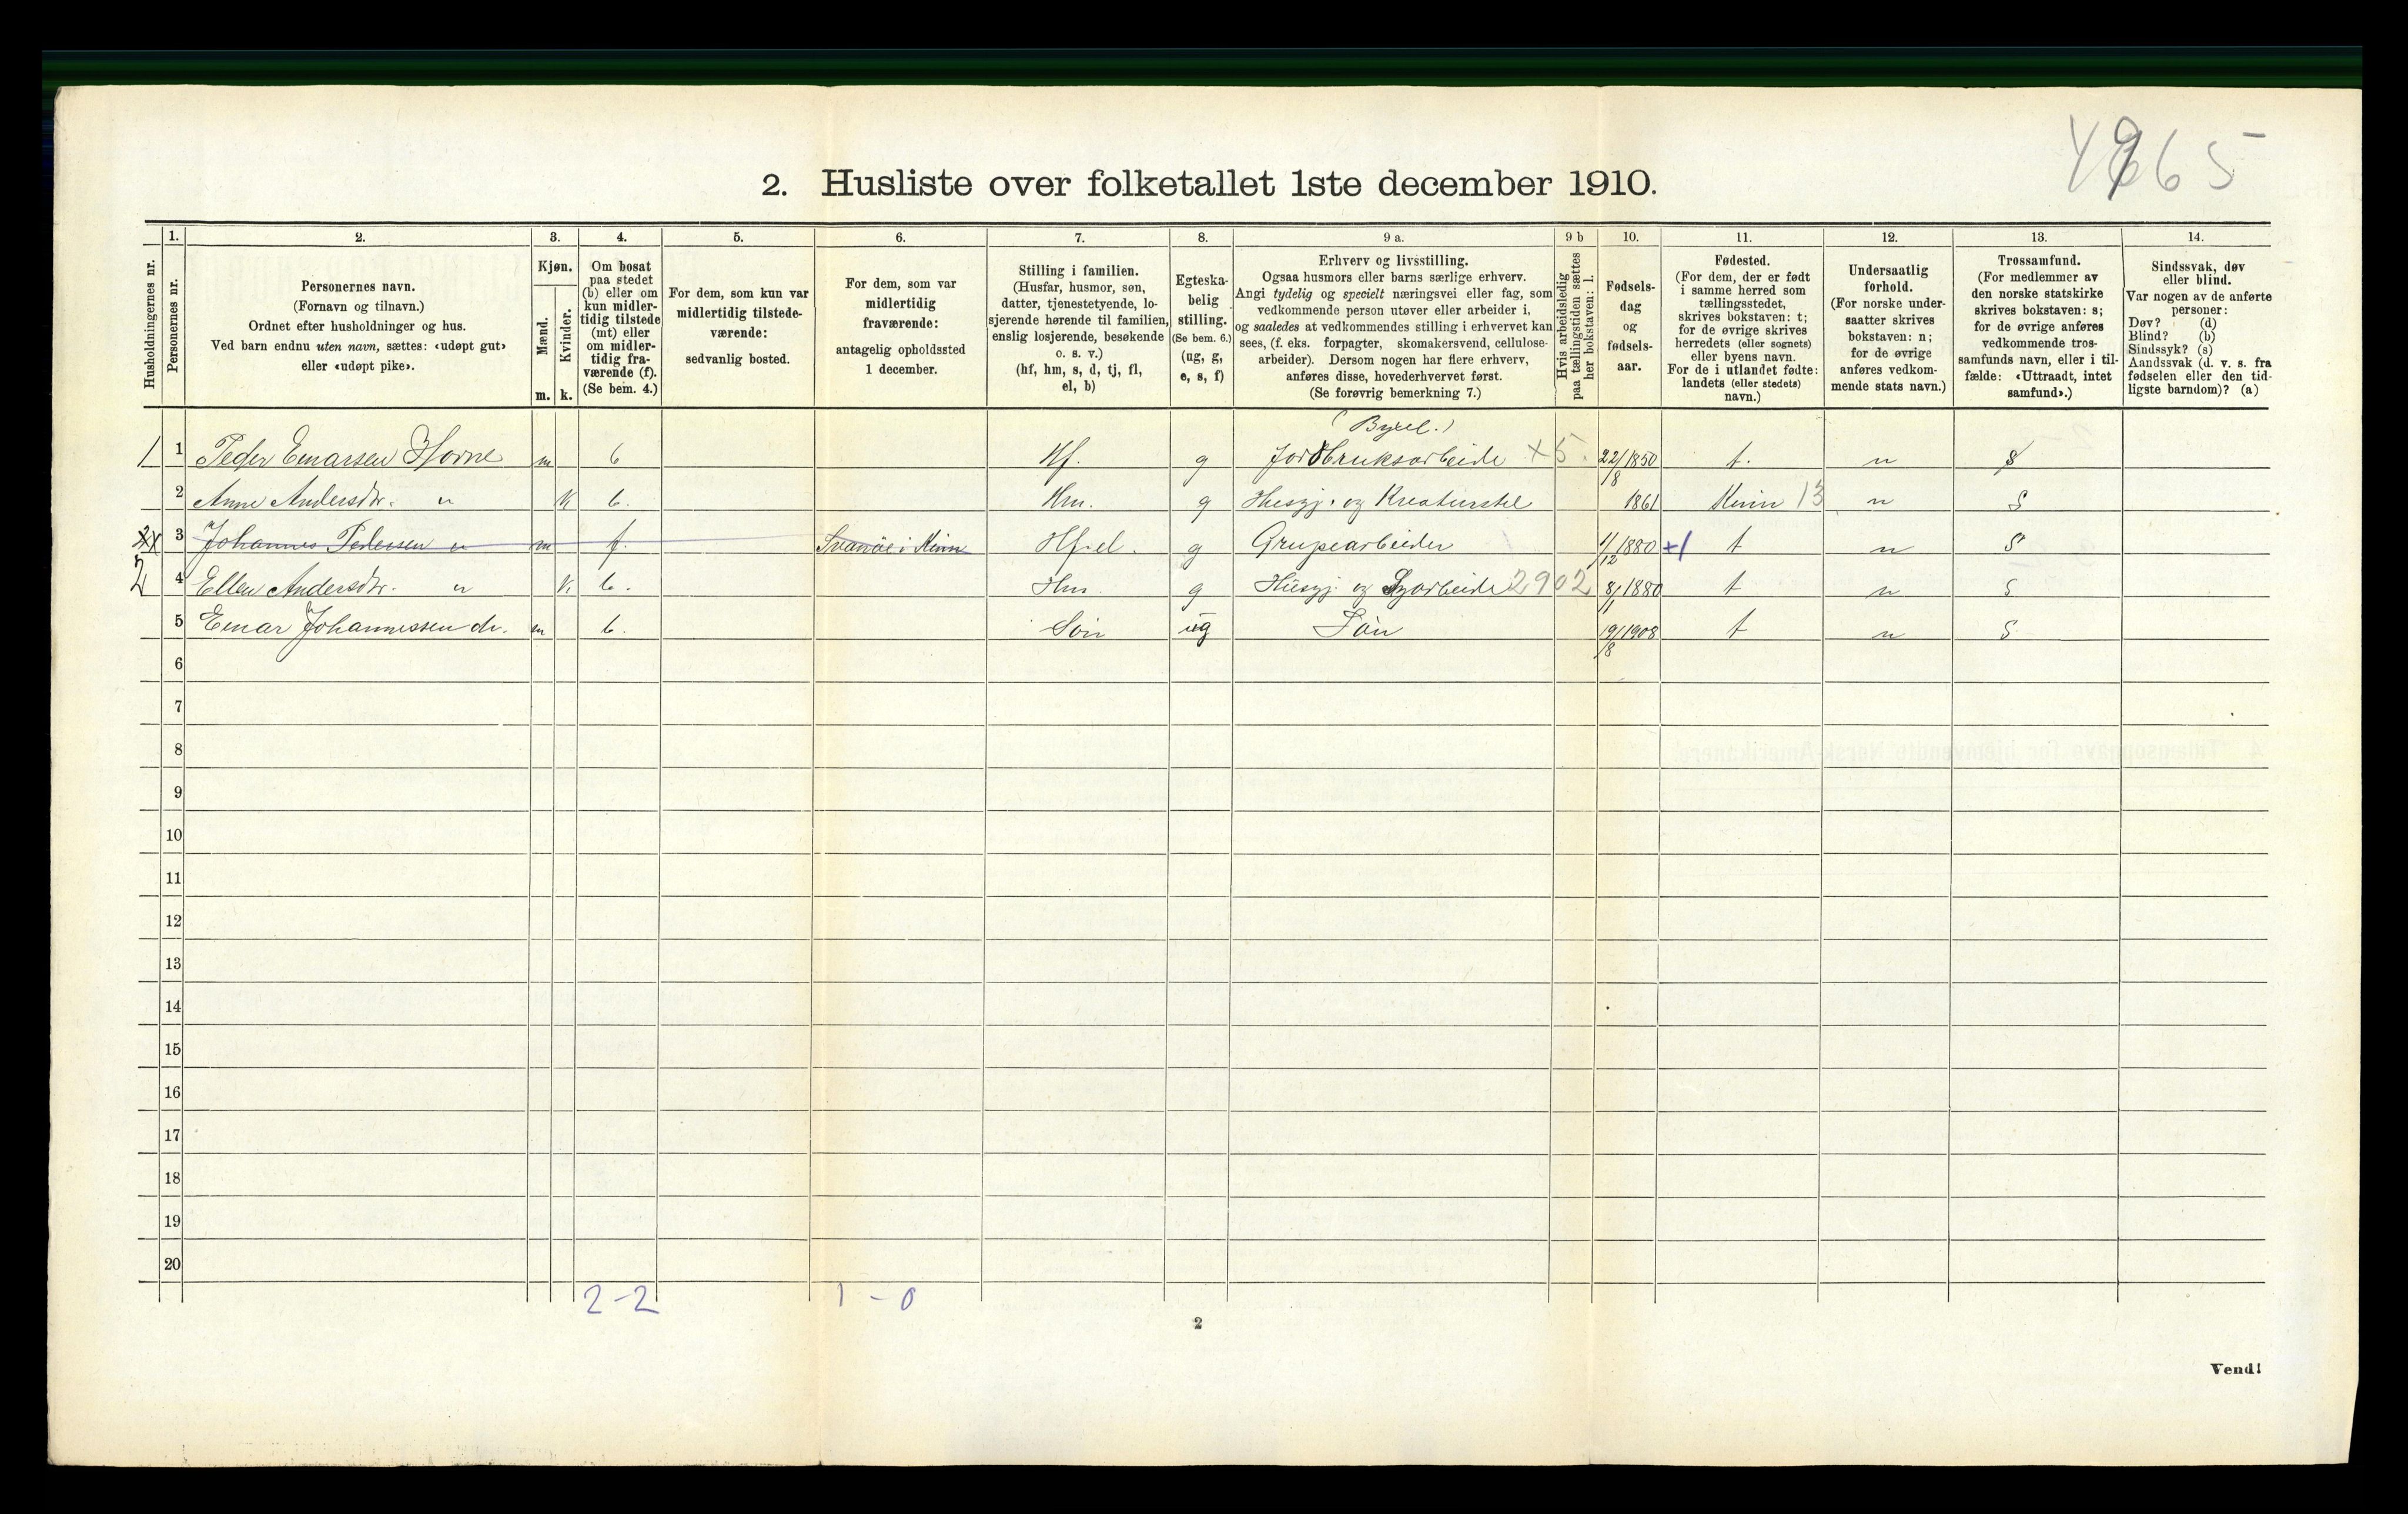 2. Husliste over folketallet 1ste december 1910.
Husholdningernes nr.
1. Personernes nr.
2.
Personernes navn.
(Fornavn og tilnavn.)
Ordnet efter husholdninger og hus.
Ved barn endnu uten navn, sættes: «udøpt gut»
eller «udøpt pike».
3.
Kjøn.
Mænd.
Kvinder.
m. k.
4.
Om bosat
paa stedet
(b) eller om
kun midler-
tidig tilstede
(mt) eller
om midler-
tidig fra-
værende (f).
(Se bem. 4.)
5.
For dem, som kun var
midlertidig tilstede-
værende:
sedvanlig bosted.
6.
For dem, som var
midlertidig
fraværende:
antagelig opholdssted
1 december.
7.
Stilling i familien.
(Husfar, husmor, søn,
datter, tjenestetyende, lo-
sjerende hørende til familien,
enslig losjerende, besøkende
o. s. v.)
(hf, hm, s, d, tj, fl,
el, b)
8.
Egteska-
belig
stilling.
(Se bem. 6.)
(ug, g,
e, s, f)
9 a.
Erhverv og livsstilling.
Ogsaa husmors eller barns særlige erhverv.
Angi tydelig og specielt næringsvei eller fag, som
vedkommende person utøver eller arbeider i,
og saaledes at vedkommendes stilling i erhvervet kan
sees, (f. eks. forpagter, skomakersvend, cellulose-
arbeider). Dersom nogen har flere erhverv,
anføres disse, hovederhvervet først.
(Se forøvrig bemerkning 7.)
9 b
Hvis arbeidsledig
paa tællingstiden sættes
her bokstaven: l.
10.
Fødsels-
dag
og
fødsels-
aar.
11.
Fødested.
(For dem, der er født
i samme herred som
tællingsstedet,
skrives bokstaven: t;
for de øvrige skrives
herredets (eller sognets)
eller byens navn.
For de i utlandet fødte:
landets (eller stedets)
navn.)
12.
Undersaatlig
forhold.
(For norske under-
saatter skrives
bokstaven: n;
for de øvrige
anføres vedkom-
mende stats navn.)
13.
Trossamfund.
(For medlemmer av
den norske statskirke
skrives bokstaven: s;
for de øvrige anføres
vedkommende tros-
samfunds navn, eller i til-
fælde: «Uttraadt, intet
samfund».)
14.
Sindssvak, døv
eller blind.
Var nogen av de anførte
personer:
Døv? (d)
Blind? (b)
Sindssyk? (s)
Aandssvak (d. v. s. fra
fødselen eller den tid-
ligste barndom)? (a)
1 1 Peder Einarsen Hovne m b Hf. g Jordbruksarbeide x5. 22/8 1850 t. n s
2 Anne Andersdtr. " k b. Hm. g Husgj. og Kreaturstel 1861 Kinn 13 n s
3 Johannes Pedersen " m f. Svanøe i Kinn Hf-el. g Grupearbeider 1/12 1880 +1 t n s
2 4 Ellen Andersdtr. " k b. Hm g Husgj. og Syarbeide 2902 8/1 1880 t n s
5 Einar Johannessen do. m b. Søn ug Søn 19/8 1908 t n s
6
7
8
9
10
11
12
13
14
15
16
17
18
19
20
2-2 1-0
2
Vend!